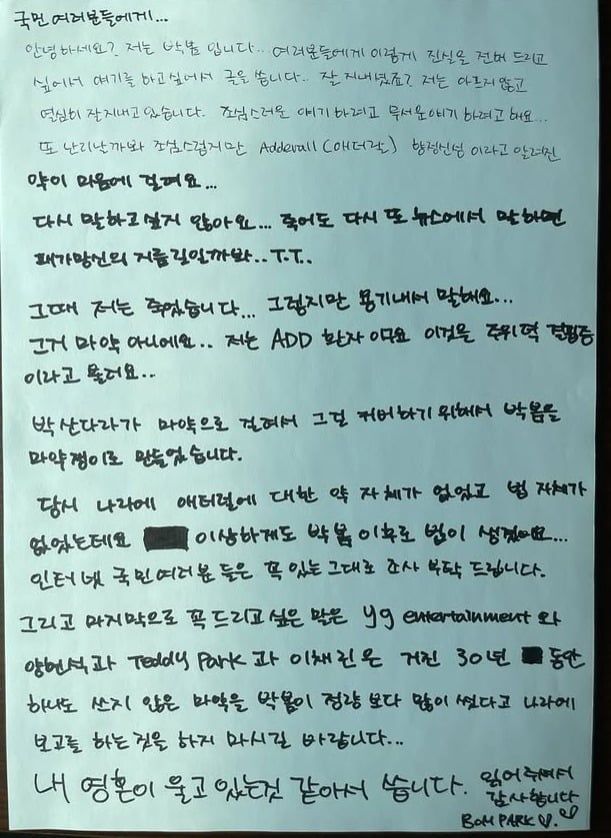 국민 여러분들에게...
안녕하세요? 저는 박봄 입니다.. 여러분들에게 이렇게 진실을 전해 드리고
싶어서 얘기를 하고싶어서 글을 씁니다.. 잘 지내셨죠? 저는 아프지 않고
열심히 잘지내고 있습니다. 조심스러운 얘기 하려고 무서운 얘기 하려고 해요...
또 난리날까봐 조심스럽지만 Adderall (애더랄) 향정신성 이라고 알려진
약이 마음에 걸려요...
다시 말하고싶지 않아요... 죽어도 다시 또 뉴스에서 말하면
패가망신의 지름길일까봐.. T.T..
그때 저는 죽었습니다... 그렇지만 용기내서 말해요...
그거 마약 아니에요.. 저는 ADD 환자 이고요 이것을 주위력 결핍증
이라고 불러요...
박산다라가 마약으로 걸려서 그걸 커버하기 위해서 박봄을
마약쟁이로 만들었습니다.
당시 나라에 애더럴에 대한 약 자체가 없었고 법 자체가
없었는데요 이상하게도 박봄 이후로 법이 생겼어요...
인터넷 국민여러분 들은 꼭 있는 그대로 조사 부탁 드립니다.
그리고 마지막으로 꼭 드리고 싶은 말은 yg entertainment 와
양현석과 Teddy Park 과 이채린은 거진 30년 동안
하나도 쓰지 않은 마약을 박봄이 정량 보다 많이 썼다고 나라에
보고를 하는것을 하지 마시길 바랍니다...
내 영혼이 울고 있는것 같아서 씁니다. 읽어주셔서
감사합니다
BOM PARK ♡.♡